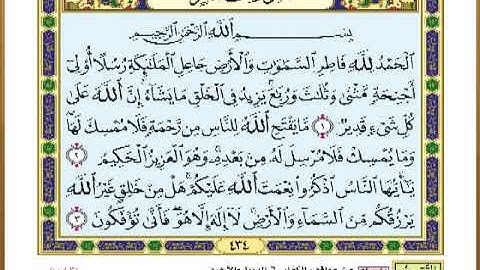 بِسْمِ ٱللَّهِ ٱلرَّحْمَٰنِ ٱلرَّحِيمِ
ٱلْحَمْدُ لِلَّهِ فَاطِرِ ٱلسَّمَٰوَٰتِ وَٱلْأَرْضِ جَاعِلِ ٱلْمَلَٰٓئِكَةِ رُسُلًا أُو۟لِىٓ
أَجْنِحَةٍ مَّثْنَىٰ وَثُلَٰثَ وَرُبَٰعَ ۚ يَزِيدُ فِى ٱلْخَلْقِ مَا يَشَآءُ ۚ إِنَّ ٱللَّهَ عَلَىٰ
كُلِّ شَىْءٍ قَدِيرٌ ١ مَّا يَفْتَحِ ٱللَّهُ لِلنَّاسِ مِن رَّحْمَةٍ فَلَا مُمْسِكَ لَهَا ۖ
وَمَا يُمْسِكْ فَلَا مُرْسِلَ لَهُۥ مِنۢ بَعْدِهِۦ ۚ وَهُوَ ٱلْعَزِيزُ ٱلْحَكِيمُ ٢
يَٰٓأَيُّهَا ٱلنَّاسُ ٱذْكُرُوا۟ نِعْمَتَ ٱللَّهِ عَلَيْكُمْ ۚ هَلْ مِنْ خَٰلِقٍ غَيْرُ ٱللَّهِ
يَرْزُقُكُم مِّنَ ٱلسَّمَآءِ وَٱلْأَرْضِ ۚ لَآ إِلَٰهَ إِلَّا هُوَ ۖ فَأَنَّىٰ تُؤْفَكُونَ ٣
٤٣٤